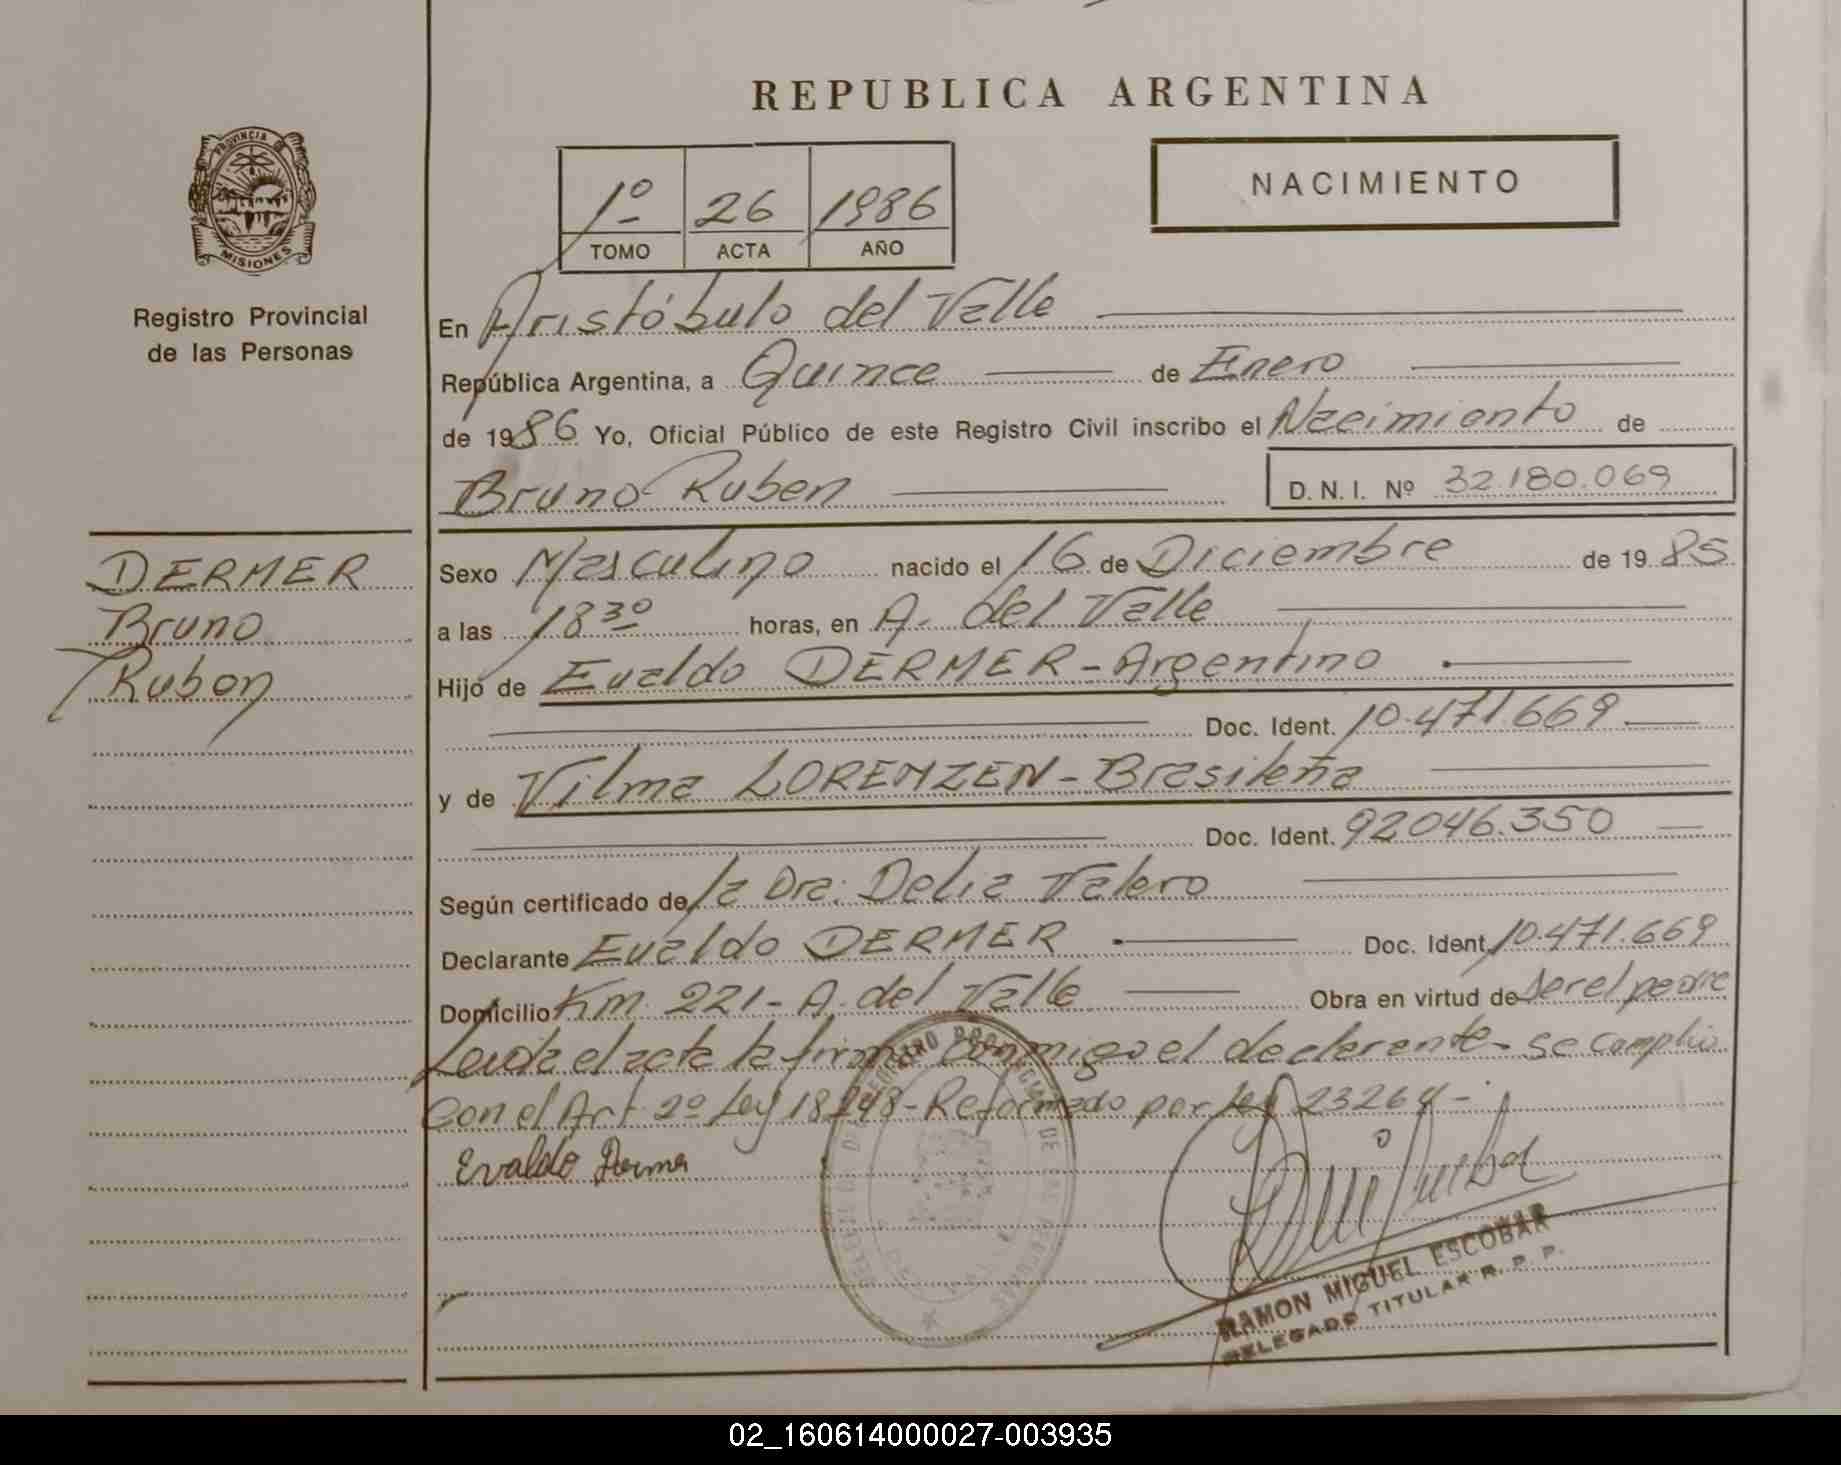 REPUBLICA ARGENTINA
PROVINCIA DE
MISIONES
Registro Provincial
de las Personas
1º 26 1986
TOMO ACTA AÑO
NACIMIENTO
En Aristóbulo del Valle
República Argentina, a Quince de Enero
de 1986 Yo, Oficial Público de este Registro Civil inscribo el Nacimiento de
Bruno Ruben D. N. I. Nº 32.180.069
DERMER
Bruno
Ruben
Sexo Masculino nacido el 16 de Diciembre de 1985
a las 18 30 horas, en A. del Valle
Hijo de Evaldo DERMER - Argentino
Doc. Ident. 10.471.669
y de Vilma LORENZEN - Brasileña
Doc. Ident. 92046.350
Según certificado de la Dra. Delia Valero
Declarante Evaldo DERMER Doc. Ident. 10.471.669
Domicilio Km. 221 - A. del Valle Obra en virtud de ser el padre
Leída el acta la firma conmigo el declarante - se cumplió
Con el Art 2º Ley 18248 - Reformado por Ley 23264 -
Evaldo Dermer
RAMON MIGUEL ESCOBAR
DELEGADO TITULAR R. P. P.
02_160614000027-003935